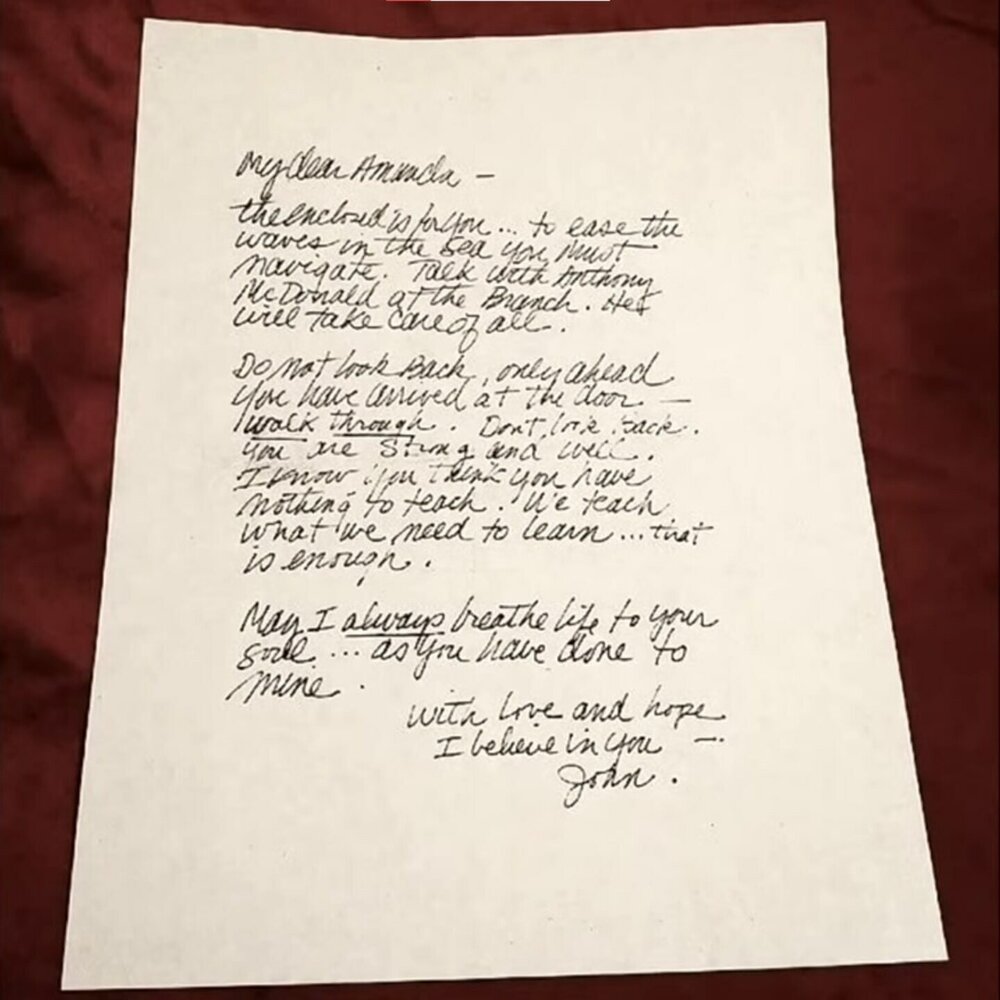 My dear Amanda —
the enclosed is for you... to ease the
waves in the sea you must
navigate. Talk with Anthony
McDonald at the Branch. He
will take care of all.
Do not look Back, only ahead
you have arrived at the door —
walk through. Don't look back.
you are strong and well.
I know you think you have
nothing to teach. We teach
what we need to learn... that
is enough.
May I always breathe life to your
soul... as you have done to
mine.
With love and hope
I believe in you —.
John.